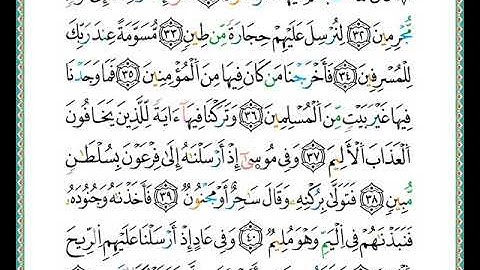 مُّجۡرِمِينَ ٣٢ لِنُرۡسِلَ عَلَيۡهِمۡ حِجَارَةٗ مِّن طِينٖ ٣٣ مُّسَوَّمَةً عِندَ رَبِّكَ
لِلۡمُسۡرِفِينَ ٣٤ فَأَخۡرَجۡنَا مَن كَانَ فِيهَا مِنَ ٱلۡمُؤۡمِنِينَ ٣٥ فَمَا وَجَدۡنَا
فِيهَا غَيۡرَ بَيۡتٖ مِّنَ ٱلۡمُسۡلِمِينَ ٣٦ وَتَرَكۡنَا فِيهَآ ءَايَةٗ لِّلَّذِينَ يَخَافُونَ
ٱلۡعَذَابَ ٱلۡأَلِيمَ ٣٧ وَفِي مُوسَىٰٓ إِذۡ أَرۡسَلۡنَٰهُ إِلَىٰ فِرۡعَوۡنَ بِسُلۡطَٰنٖ
مُّبِينٖ ٣٨ فَتَوَلَّىٰ بِرُكۡنِهِۦ وَقَالَ سَٰحِرٌ أَوۡ مَجۡنُونٞ ٣٩ فَأَخَذۡنَٰهُ وَجُنُودَهُۥ
فَنَبَذۡنَٰهُمۡ فِي ٱلۡيَمِّ وَهُوَ مُلِيمٞ ٤٠ وَفِي عَادٍ إِذۡ أَرۡسَلۡنَا عَلَيۡهِمُ ٱلرِّيحَ